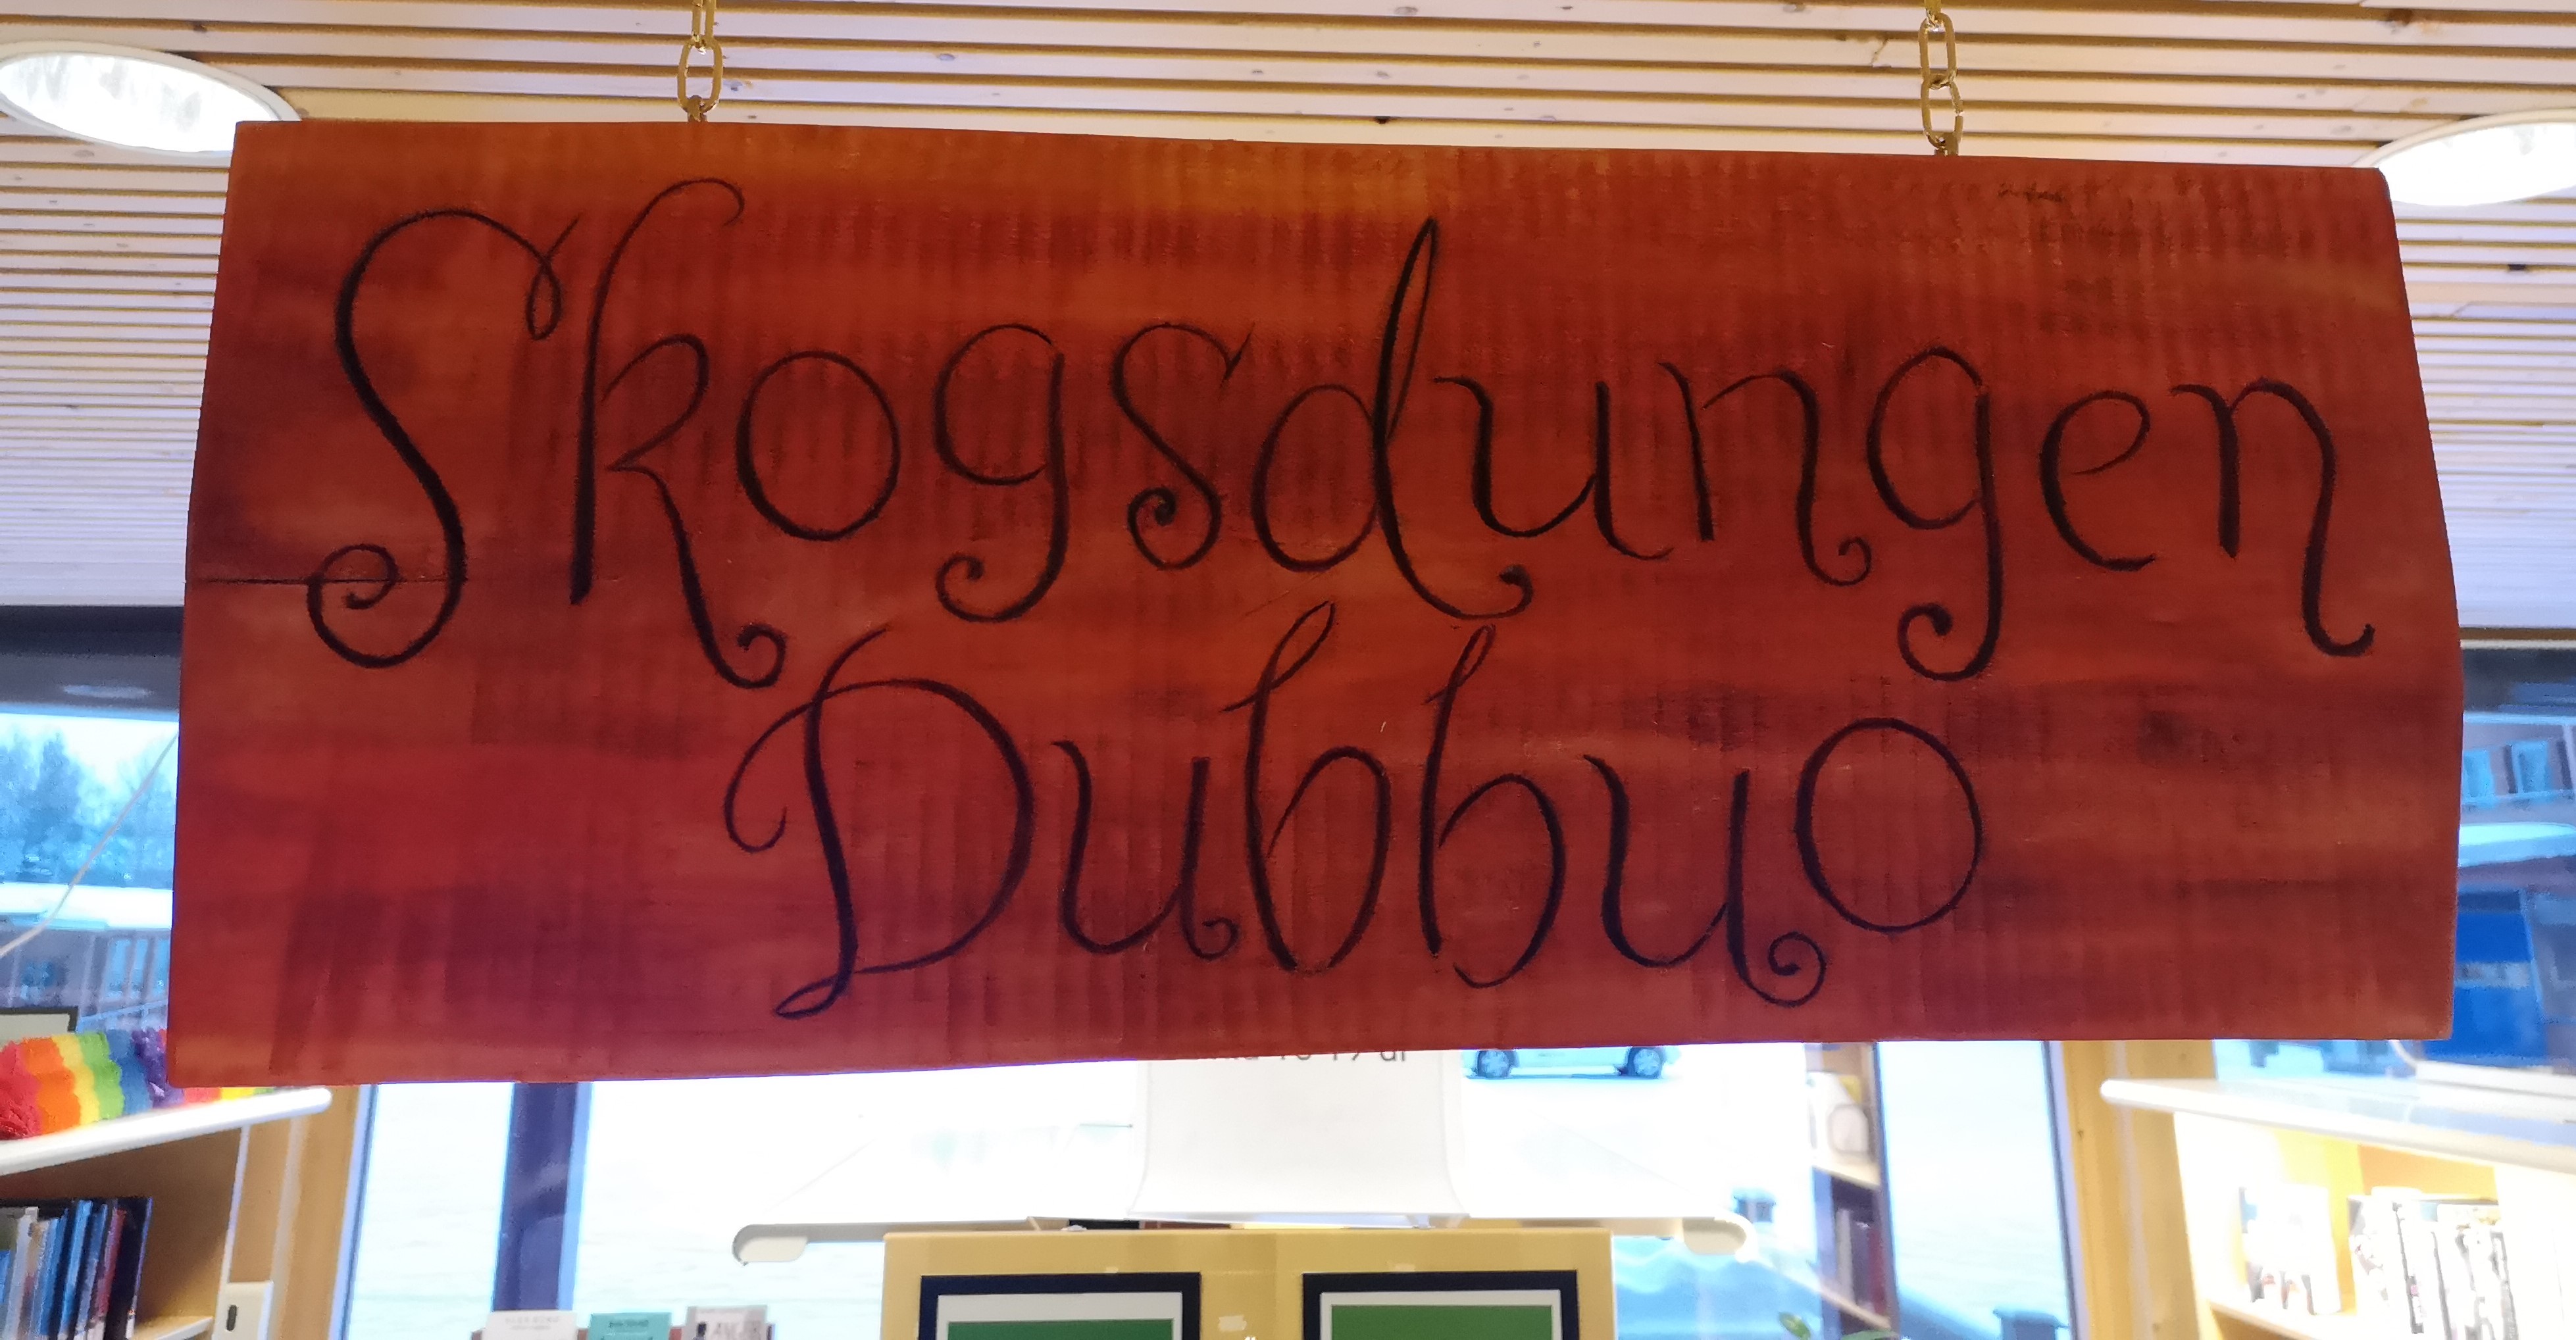 Skogsdungen
Dubbuo